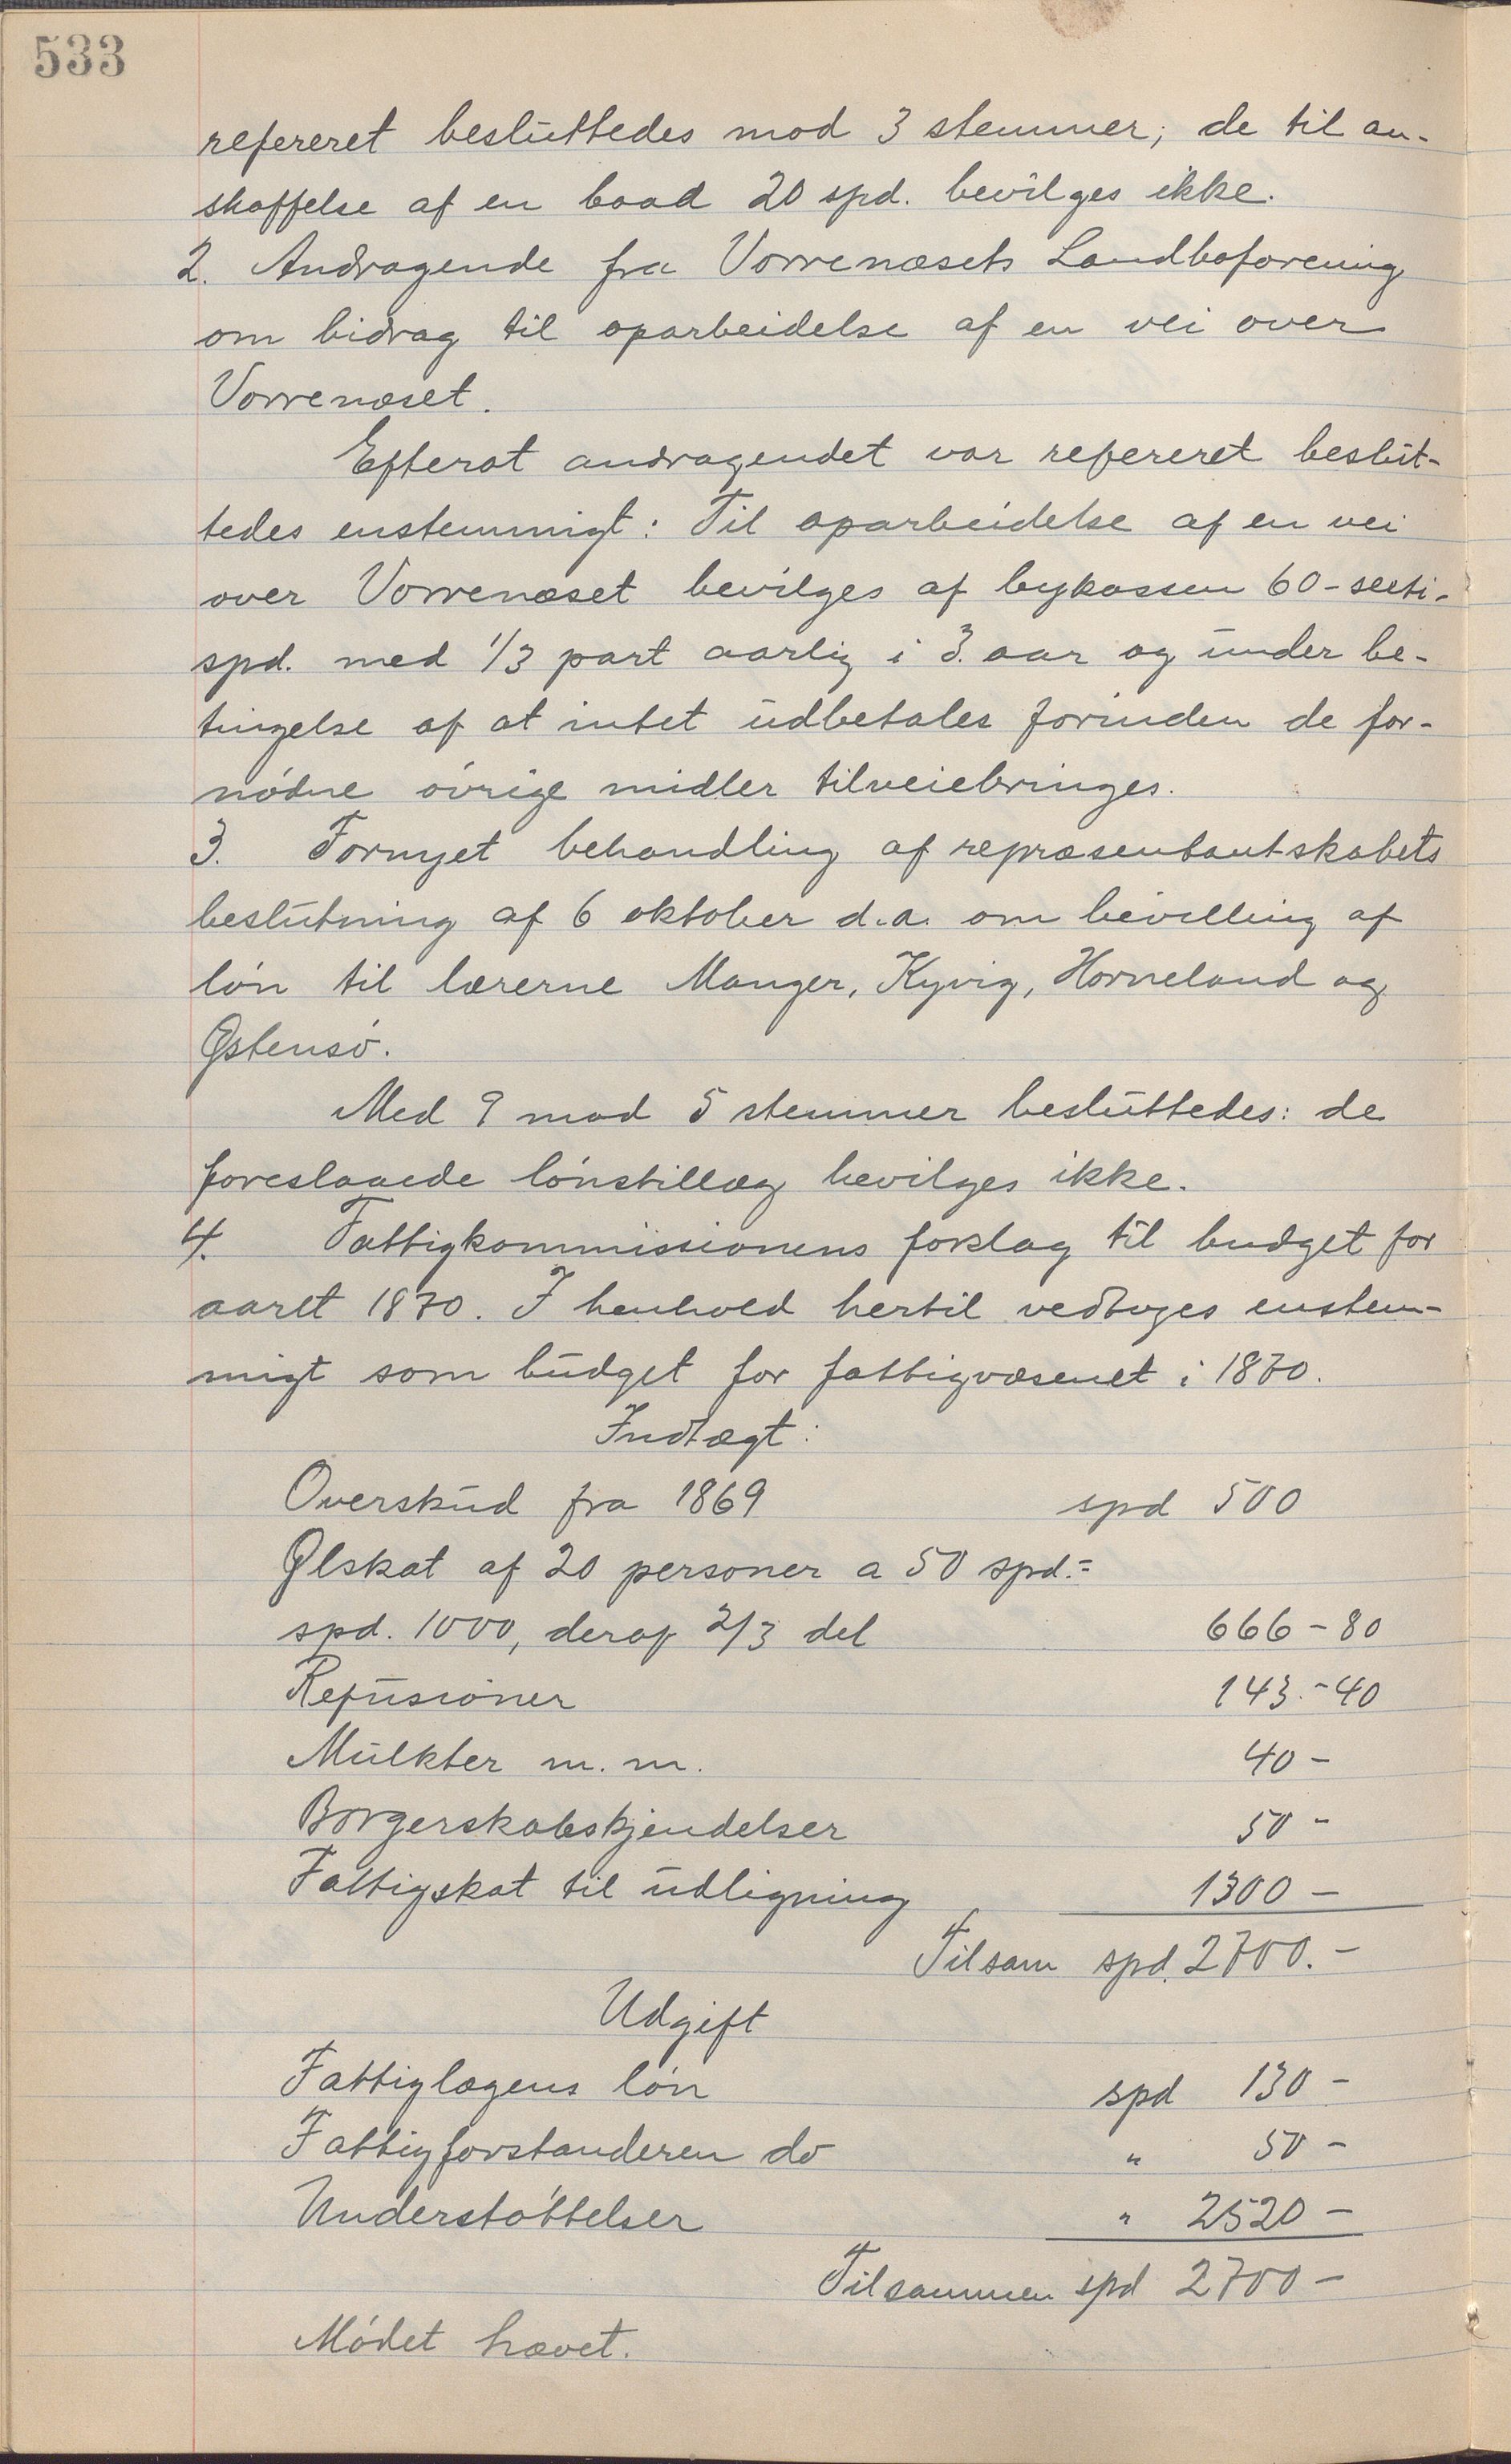 533
refereret besluttedes mod 3 stemmer; de til an-
skaffelse af en baad 20 spd. bevilges ikke.
2. Andragende fra Vorrenæsets Landboforening
om bidrag til oparbeidelse af en vei over
Vorrenæset.
Efterat andragendet var refereret beslut-
tedes enstemmigt: Til oparbeidelse af en vei
over Vorrenæset bevilges af bykassen 60 - seeti-
spd. med 1/3 part aarlig i 3. aar og under be-
tingelse af at intet udbetales forinden de for-
nødne øvrige midler tilveiebringes.
3. Fornyet behandling af repræsentantskabets
beslutning af 6 oktober d.a. om bevilling af
løn til lærerne Manger, Kyvig, Horneland og
Østensø.
Med 9 mod 5 stemmer besluttedes: de
foreslaaede lønstillæg bevilges ikke.
4. Fattigkommissionens forslag til budget for
aaret 1870. I henhold hertil vedtoges enstem-
migt som budget for fattigvæsenet i 1870.
Indtægt:
Overskud fra 1869 spd 500
Ølskat af 20 personer a 50 spd.=
spd. 1000, deraf 2/3 del 666 - 80
Refusioner 143. - 40
Mulkter m. m. 40 -
Borgerskabskjendelser 50 -
Fattigskat til udligning 1300 -
Tilsam spd. 2700. -
Udgift
Fattiglægens løn spd 130 -
Fattigforstanderen do " 50 -
Understøttelser " 2520 -
Tilsammen spd 2700 -
Mødet hævet.